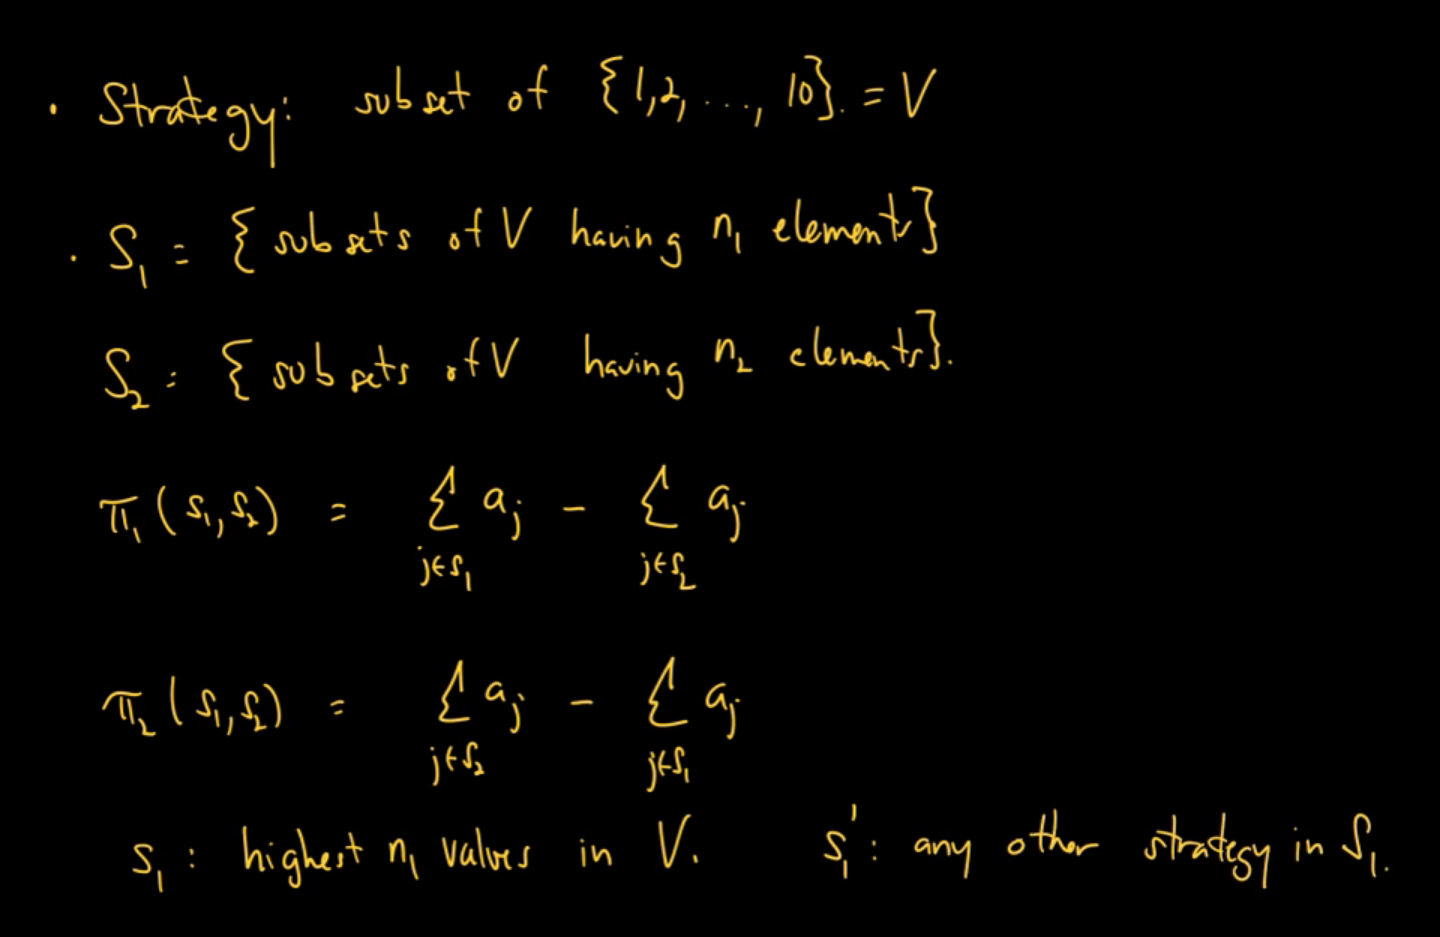 • Strategy: subset of {1,2, ..., 10}. = V
• S₁ = { subsets of V having n₁ elements}
S₂ = { subsets of V having n₂ elements}.
π₁(s₁,s₂) = Σ aⱼ - Σ aⱼ
j∈s₁ j∈s₂
π₂(s₁,s₂) = Σ aⱼ - Σ aⱼ
j∈s₂ j∈s₁
s₁ : highest n₁ values in V. s₁' : any other strategy in S₁.